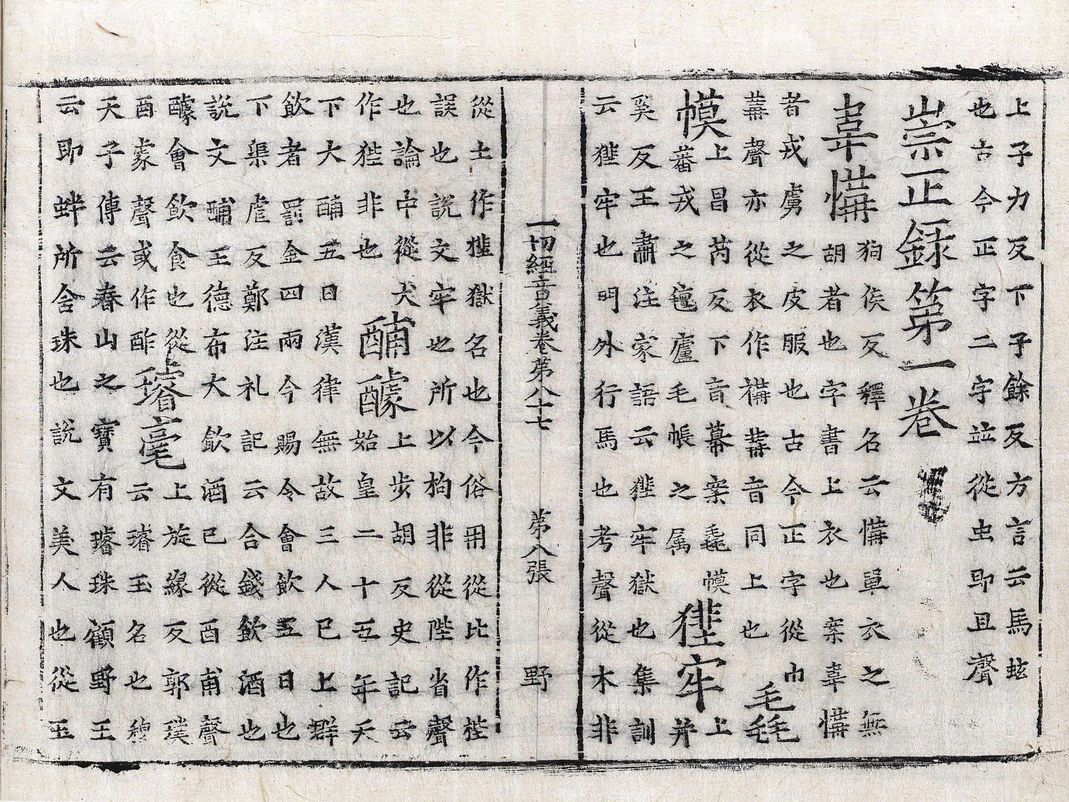 上子力反下子餘反方言云馬蚿
也古今正字二字並從虫即且聲
崇正録第一卷
韋褠狗侯反釋名云褠單衣之無
胡者也字書上衣也案韋褠
者戎虜之皮服也古今正字從巾
冓聲亦從衣作褠冓音同上也毛毳
幙上昌芮反下音幕案毳幙
蕃戎之氊廬毛帳之属狴牢上并
奚反王肅注家語云狴牢獄也集訓
云狴牢也門外行馬也考聲從木非
一切經音義卷第八十七 第八張 野
從土作狴獄名也今俗用從比作梐
誤也說文牢也所以拘非從陛省聲
也論中從犬酺醵上步胡反史記云
作狴非也始皇二十五年天
下大酺五日漢律無故三人已上群
飲者罰金四兩今賜令會飲五日也
下渠虐反鄭注礼記云合錢飲酒也
說文酺王德布大飲酒已從酉甫聲
醵會飲食也從璿毫上旋緣反郭璞
酉豦聲或作酢云璿玉名也穆
天子傳云舂山之寶有璿珠顧野王
云即蚌所含珠也說文美人也從玉